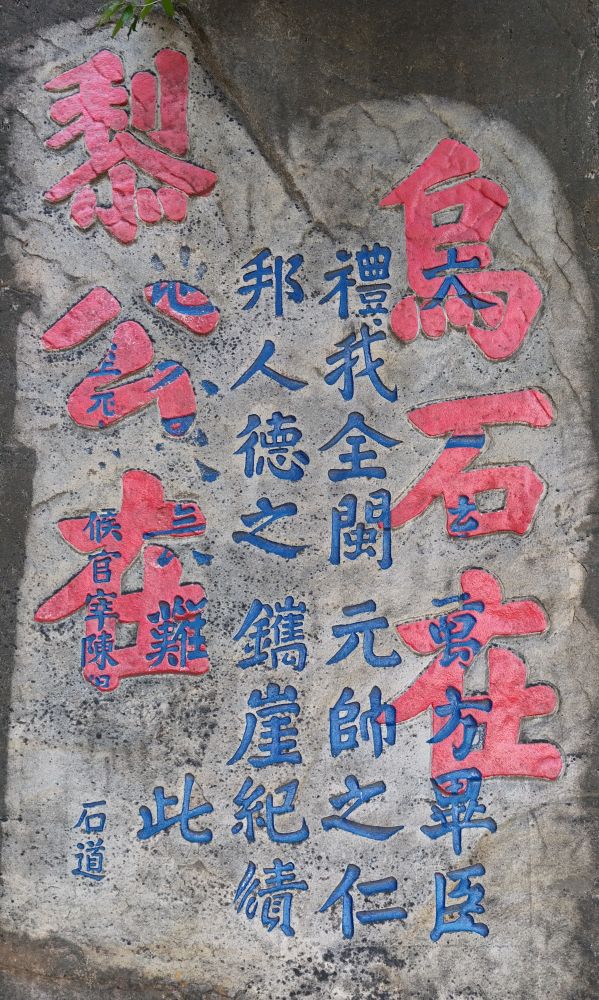 烏石在
黎公在
大 一 萬方畢臣
禮我全閩元帥之仁
邦人德之鑴崖紀績
地久 難 此
元 候官宰陳 石道